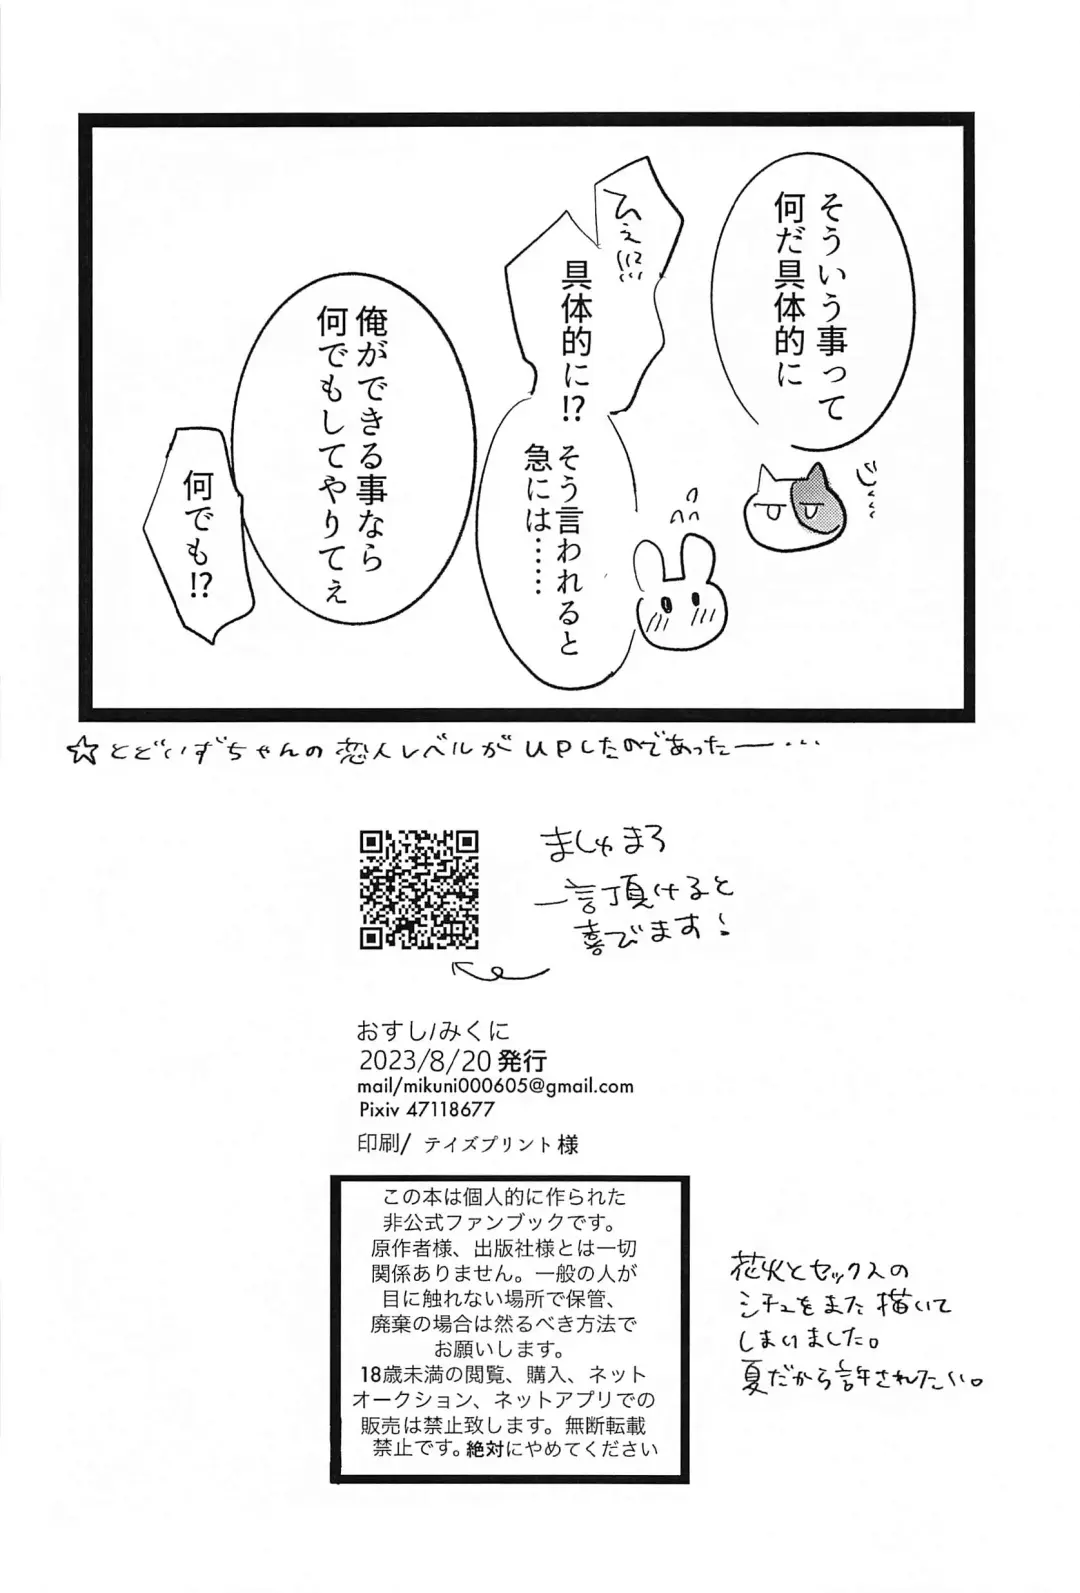 そういう事って
何だ具体的に
ジ
ひぇ
具体的に!?
そう言われると
急には……
俺ができる事なら
何でもしてやりてぇ
何でも!?
☆とどいずちゃんの恋人レベルがUPしたのであったー…
ましゅまろ
一言頂けると
喜びます!
おすし/みくに
2023/8/20 発行
mail/mikuni000605@gmail.com
Pixiv 47118677
印刷/ テイズプリント様
この本は個人的に作られた
非公式ファンブックです。
原作者様、出版社様とは一切
関係ありません。一般の人が
目に触れない場所で保管、
廃棄の場合は然るべき方法で
お願いします。
18歳未満の閲覧、購入、ネット
オークション、ネットアプリでの
販売は禁止致します。無断転載
禁止です。絶対にやめてください
花火とセックスの
シチュをまた描いて
しまいました。
夏だから許されたい。